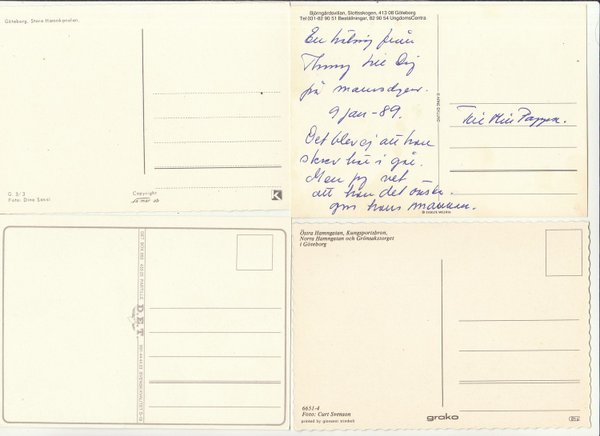 Göteborg. Stora Hamnkanalen.
G 3/3
Foto: Dino Sassi
Copyright
K
Björngårdsvillan, Slottsskogen, 413 08 Göteborg
Tel 031-82 90 51 Beställningar, 82 90 54 UngdomsCentra
En hälsning från
till Dig
på
9 jan -89.
Det blev ej att han
skrev här i går.
Men jag vet
att han det önska.
gm hans mamma.
Till Min Pappa.
D.E.T.
Östra Hamngatan, Kungsportsbron,
Norra Hamngatan och Grönsakstorget
i Göteborg
6651-4
Foto: Curt Svenson
printed by giovanni trimboli
grako